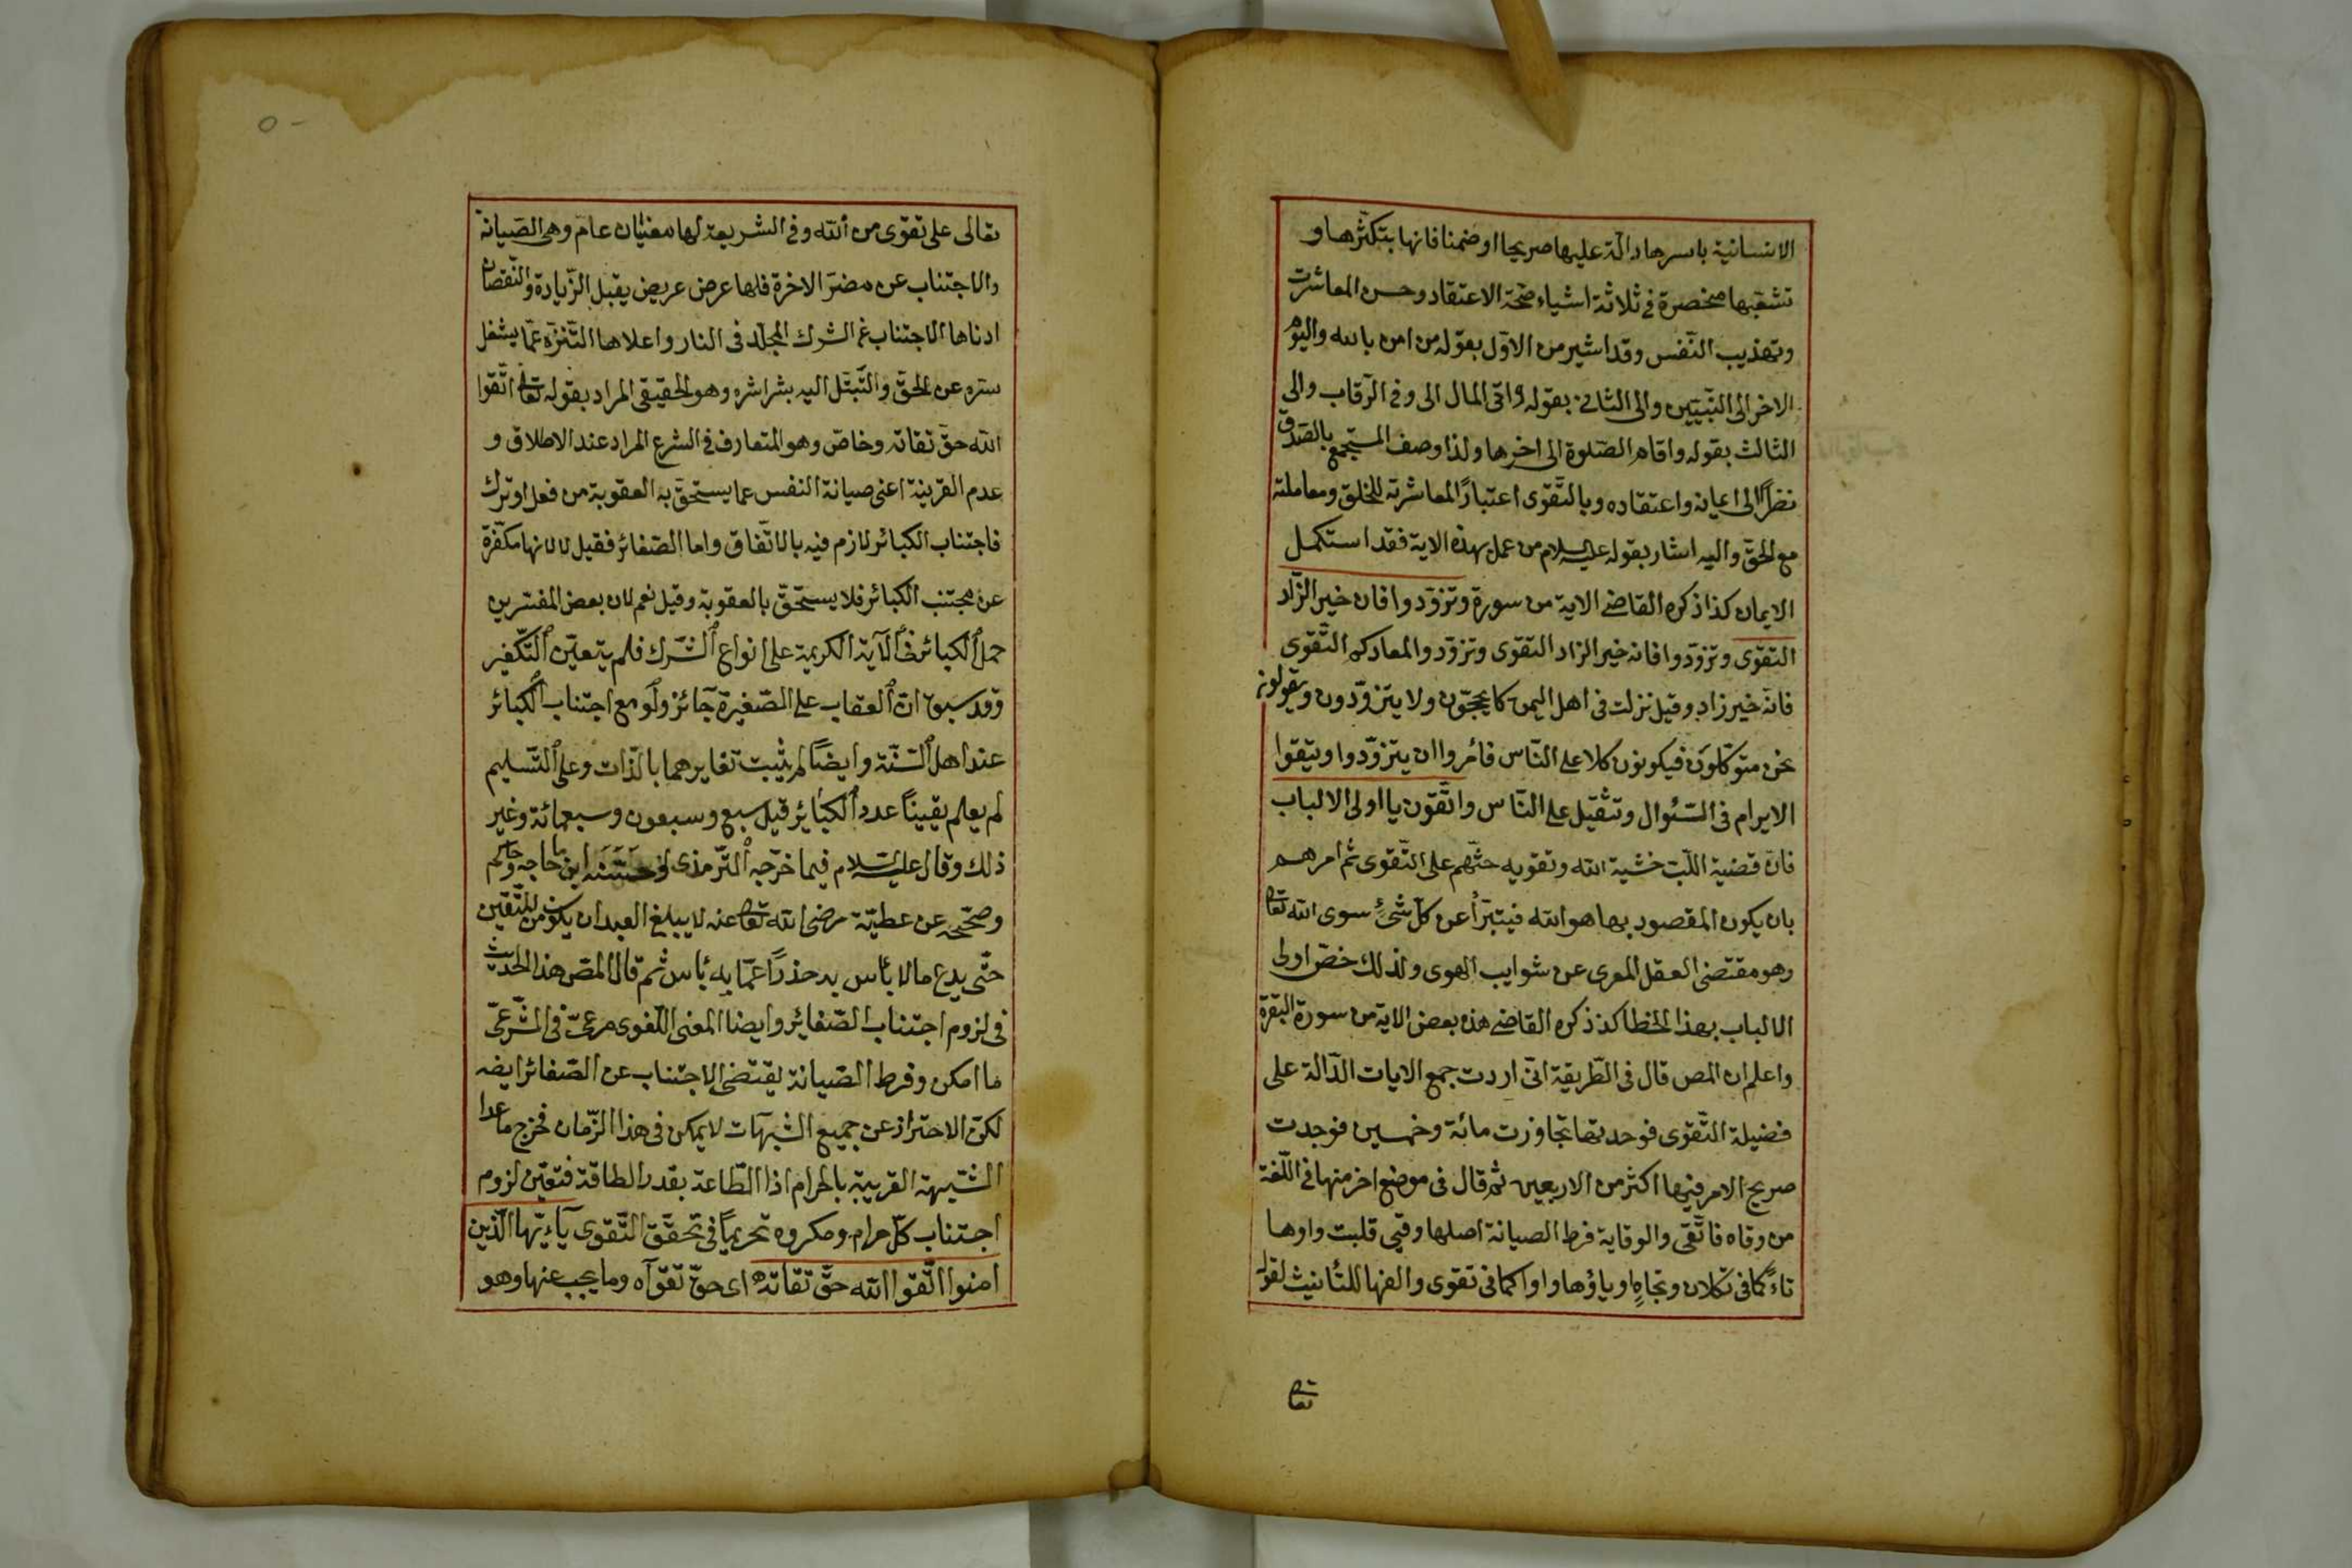 الانسانية باسرها دالّة عليها صريحا او ضمنا فانها بتكثّرها و
تشعّبها منحصرة فى ثلاثة اشياء صحّة الاعتقاد وحسن المعاشرت
وتهذيب النّفس وقد اشير من الاوّل بقوله من امن بالله واليوم
الاخر الى النّبيّين والى الثانى بقوله واتى المال الى وفى الرّقاب والى
الثالث بقوله واقام الصّلوة الى اخرها ولذا وصف المستجمع بالصّدق
نظراً الى ايمانه واعتقاده وبالتّقوى اعتبارًا لمعاشرته للخلق ومعاملته
مع الحقّ واليه اشار بقوله عليه السلام من عمل بهذه الاية فقد استكمل
الايمان كذا ذكره القاضى الاية من سورة وتزوّدوا فان خير الزّاد
التقوى وتزوّدوا فانه خير الزاد التقوى وتزوّدوا لمعادكم التّقوى
فانّه خير زاد وقيل نزلت فى اهل اليمن كا يحجّون ولا يتزوّدون ويقولون
نحن متوكّلون فيكونون كلا على النّاس فامروا ان يتزوّدوا ويتقوا
الابرام فى السّئوال وتثقيل على النّاس واتّقون يا اولى الالباب
فانّ قضية اللّب خشية الله وتقويه حثّهم على التّقوى ثم امرهم
بان يكون المقصود بها هو الله فيتبرّأ عن كلّ شئ سوى الله تعالى
وهو مقتضى العقل المعرى عن شوايب الهوى ولذلك خصّ اولى
الالباب بهذا الخطا كذ ذكره القاضى هذه بعض الاية من سورة البقرة
واعلم ان المص قال فى الطّريقة انّى اردت جمع الايات الدّالة على
فضيلة التّقوى فوجدتها تجاوزت مائة وخمسين فوجدت
صريح الامر فيها اكثر من الاربعين ثم قال فى موضع اخر منها فى اللّغة
من وقاه فاتّقى والوقاية فرط الصيانة اصلها وقيى قلبت واوها
تاءً كما فى تكلان وتجاهٍ وياؤها واوا كما فى تقوى والفها للتأنيث لقوله
تعالى
تعالى على تقوى من الله وفى الشريعة لها معنيان عام وهى الصّيانة
والاجتناب عن مضرّ الاخرة فلها عرض عريض يقبل الزّيادة والنّقصان
ادناها الاجتناب عن الشرك المخلّد فى النار واعلاها التّنزّه عمّا يشغل
سرّه عن الحقّ والتّبتّل اليه بشراشره وهو الحقيقى المراد بقوله تعالى اتّقوا
الله حقّ تقاته وخاصّ وهو المتعارف فى الشرع المراد عند الاطلاق و
عدم القرينة اعنى صيانة النفس عما يستحقّ به العقوبة من فعل او ترك
فاجتناب الكبائر لازم فيه بالاتّفاق واما الصّغائر فقيل لا لانها مكفّرة
عن مجتنب الكبائر فلا يستحقّ بالعقوبة وقيل نعم لان بعض المفسّرين
حمل الكبائر فى الآية الكريمة على انواع الشّرك فلم يتعيّن التّكفير
وقد سبق انّ العقاب على الصّغيرة جآئز ولو مع اجتناب الكبائر
عند اهل السّنّة وايضاً لم يثبت تغايرهما بالذّات وعلى التّسليم
لم يعلم يقيناً عدد الكبائر قيل سبع وسبعون وسبعمائة وغير
ذلك وقال عليه السّلام فيما خرّجه التّرمذى وحسّنه ابن ماجه وحاكم
وصحّحه عن عطيّة رضى الله تعالى عنه لا يبلغ العبد ان يكون من المتّقين
حتّى يدع ما لا بأس به حذرًا عمّا به بأس ثم قال المص هذا الحديث
فى لزوم اجتناب الصّغائر وايضا المعنى اللّغوى مرعىّ فى الشّرعىّ
ما امكن وفرط الصّيانة يقتضى الاجتناب عن الصّغائر ايضه
لكنّ الاحتراز عن جميع الشّبهات لا يمكن فى هذا الزّمان فخرج ما عدا
الشّبهة القريبة بالحرام اذا الطّاعة بقدر الطاقة فتعيّن لزوم
اجتناب كلّ حرام ومكروه تحريميًا فى تحقّق التّقوى يآءيّها الّذين
امنوا اتّقوا الله حقّ تقاته اى حقّ تقوآه وما يجب عنها وهو